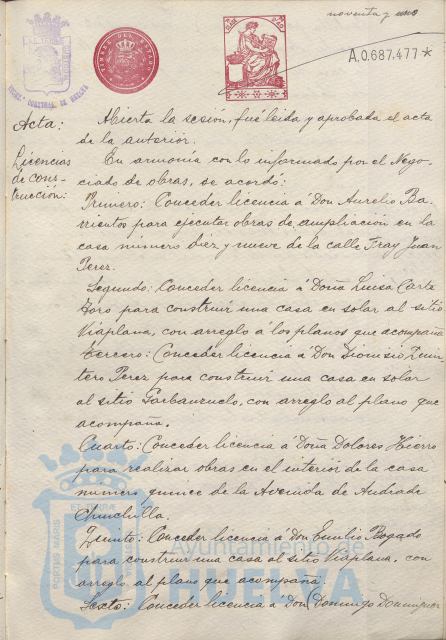 noventa y uno
A.0.687,477*
Acta:
Abierta la sesión, fué leida y aprobada el acta
de la anterior.
Licencias
de cons-
trucción:
En armonía con lo informado por el Nego-
ciado de obras, se acordó:
Primero: Conceder licencia á Don Aurelio Ba-
rrientos para ejecutar obras de ampliación en la
casa numero diez y nueve de la calle Fray Juan
Perez.
Segundo: Conceder licencia á Doña Luisa Carta
Toro para construir una casa en solar al sitio
Viaplana, con arreglo á los planos que acompaña
Tercero: Conceder licencia á Don Dionisio Quin-
tero Perez para construir una casa en solar
al sitio Garbanzuelo, con arreglo al plano que
acompaña.
Cuarto: Conceder licencia á Doña Dolores Hierro
para realizar obras en el interior de la casa
numero quince de la Avenida de Andrade
Chinchilla.
Quinto: Conceder licencia á Don Emilio Bogado
para construir una casa al sitio Viaplana, con
arreglo al plano que acompaña.
Sexto: Conceder licencia á Don Domingo Dominguez
Ayuntamiento de
HUELVA
PORTUS MARIS